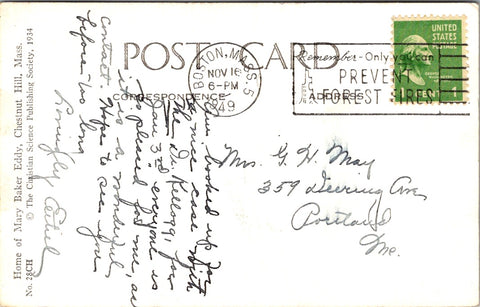 POST CARD
CORRESPONDENCE
ADDRESS
BOSTON, MASS. 5
NOV 16
6-PM
1949
Remember - Only you can
PREVENT
FOREST FIRES
UNITED
STATES
POSTAGE
1 CENT 1
Am booked up for
a nice case with
the Dr. Kellogg, Jan
3rd everyone is
pleased for me, as
it is a wonderful
contact. Hope to see you
before too long
Lovingly Ethel
Mrs. G. H. May
359 Deering Ave
Portland
Me.
Home of Mary Baker Eddy, Chestnut Hill, Mass.
© The Christian Science Publishing Society, 1934
No. 28CH